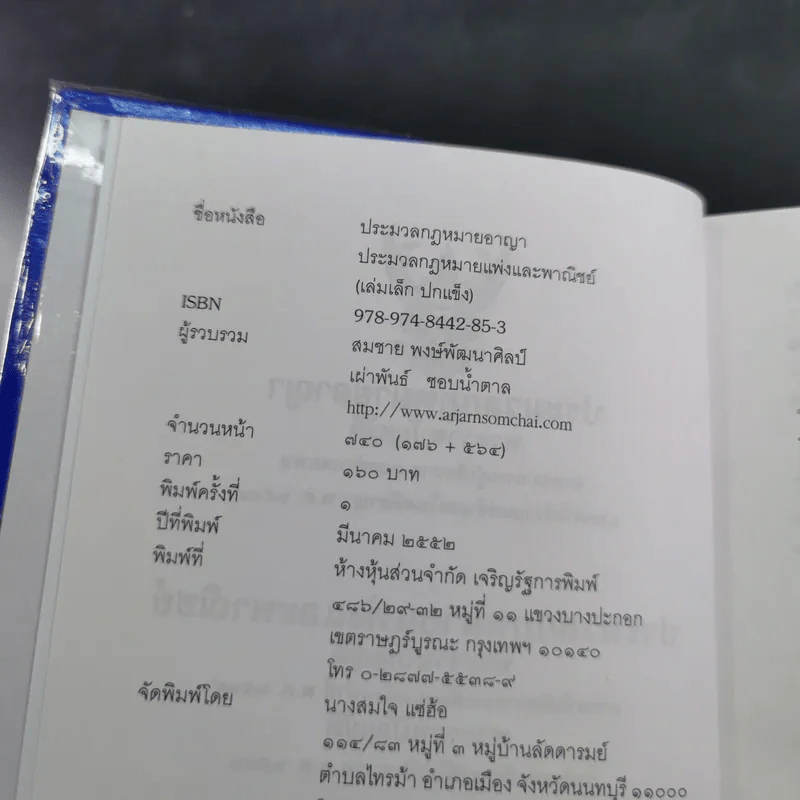 ชื่อหนังสือ ประมวลกฎหมายอาญา
ประมวลกฎหมายแพ่งและพาณิชย์
(เล่มเล็ก ปกแข็ง)
ISBN 978-974-8442-85-3
ผู้รวบรวม สมชาย พงษ์พัฒนาศิลป์
เผ่าพันธ์ ชอบน้ำตาล
http://www.arjarnsomchai.com
จำนวนหน้า ๗๔๐ (๑๗๖ + ๕๖๔)
ราคา ๑๖๐ บาท
พิมพ์ครั้งที่ ๑
ปีที่พิมพ์ มีนาคม ๒๕๕๒
พิมพ์ที่ ห้างหุ้นส่วนจำกัด เจริญรัฐการพิมพ์
๔๘๖/๒๙-๓๒ หมู่ที่ ๑๑ แขวงบางปะกอก
เขตราษฎร์บูรณะ กรุงเทพฯ ๑๐๑๔๐
โทร ๐-๒๘๗๗-๕๕๓๘-๙
จัดพิมพ์โดย นางสมใจ แซ่ฮ้อ
๑๑๔/๘๓ หมู่ที่ ๓ หมู่บ้านลัดดารมย์
ตำบลไทรม้า อำเภอเมือง จังหวัดนนทบุรี ๑๑๐๐๐